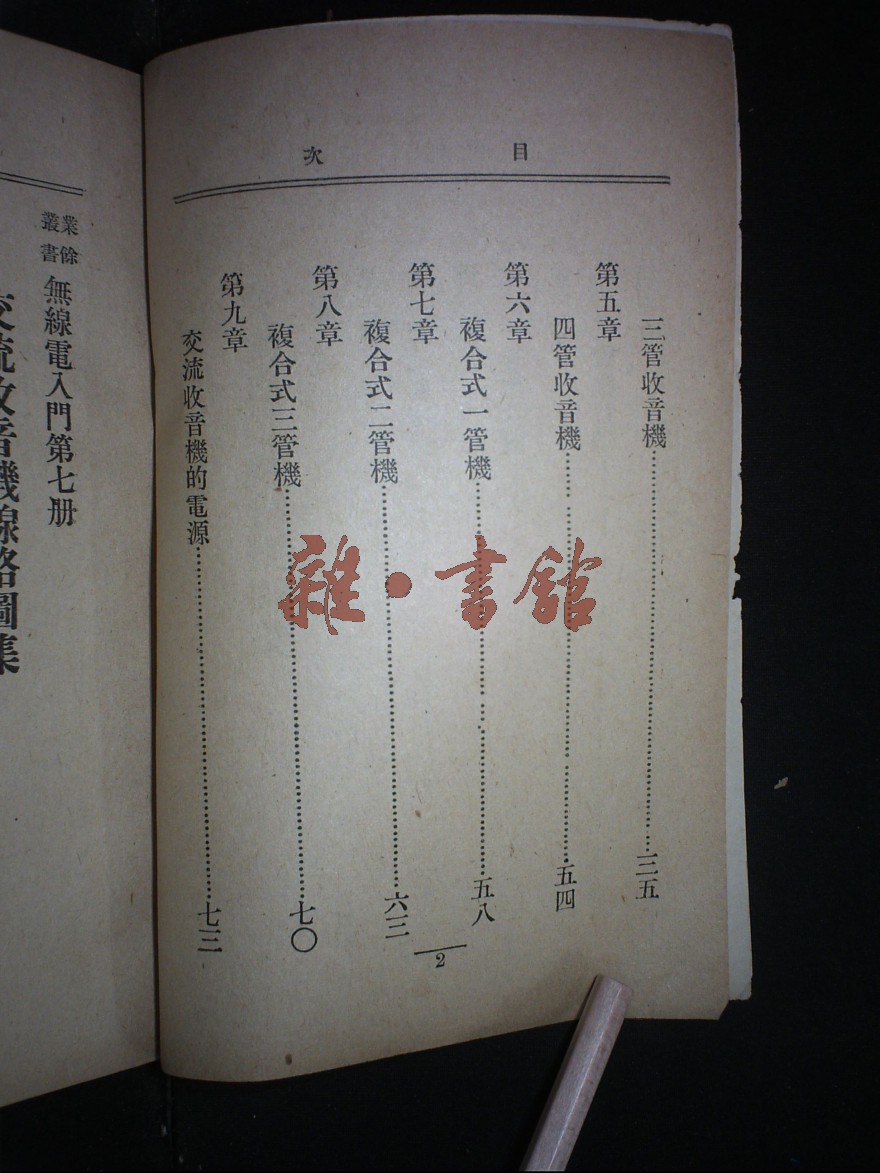 目次
三管收音機……三五
第五章
四管收音機……五四
第六章
複合式一管機……五八
第七章
複合式二管機……六三
第八章
複合式三管機……七〇
第九章
交流收音機的電源……七三
2
雜·書館
業餘
叢書
無線電入門第七册
交流收音機線路圖集